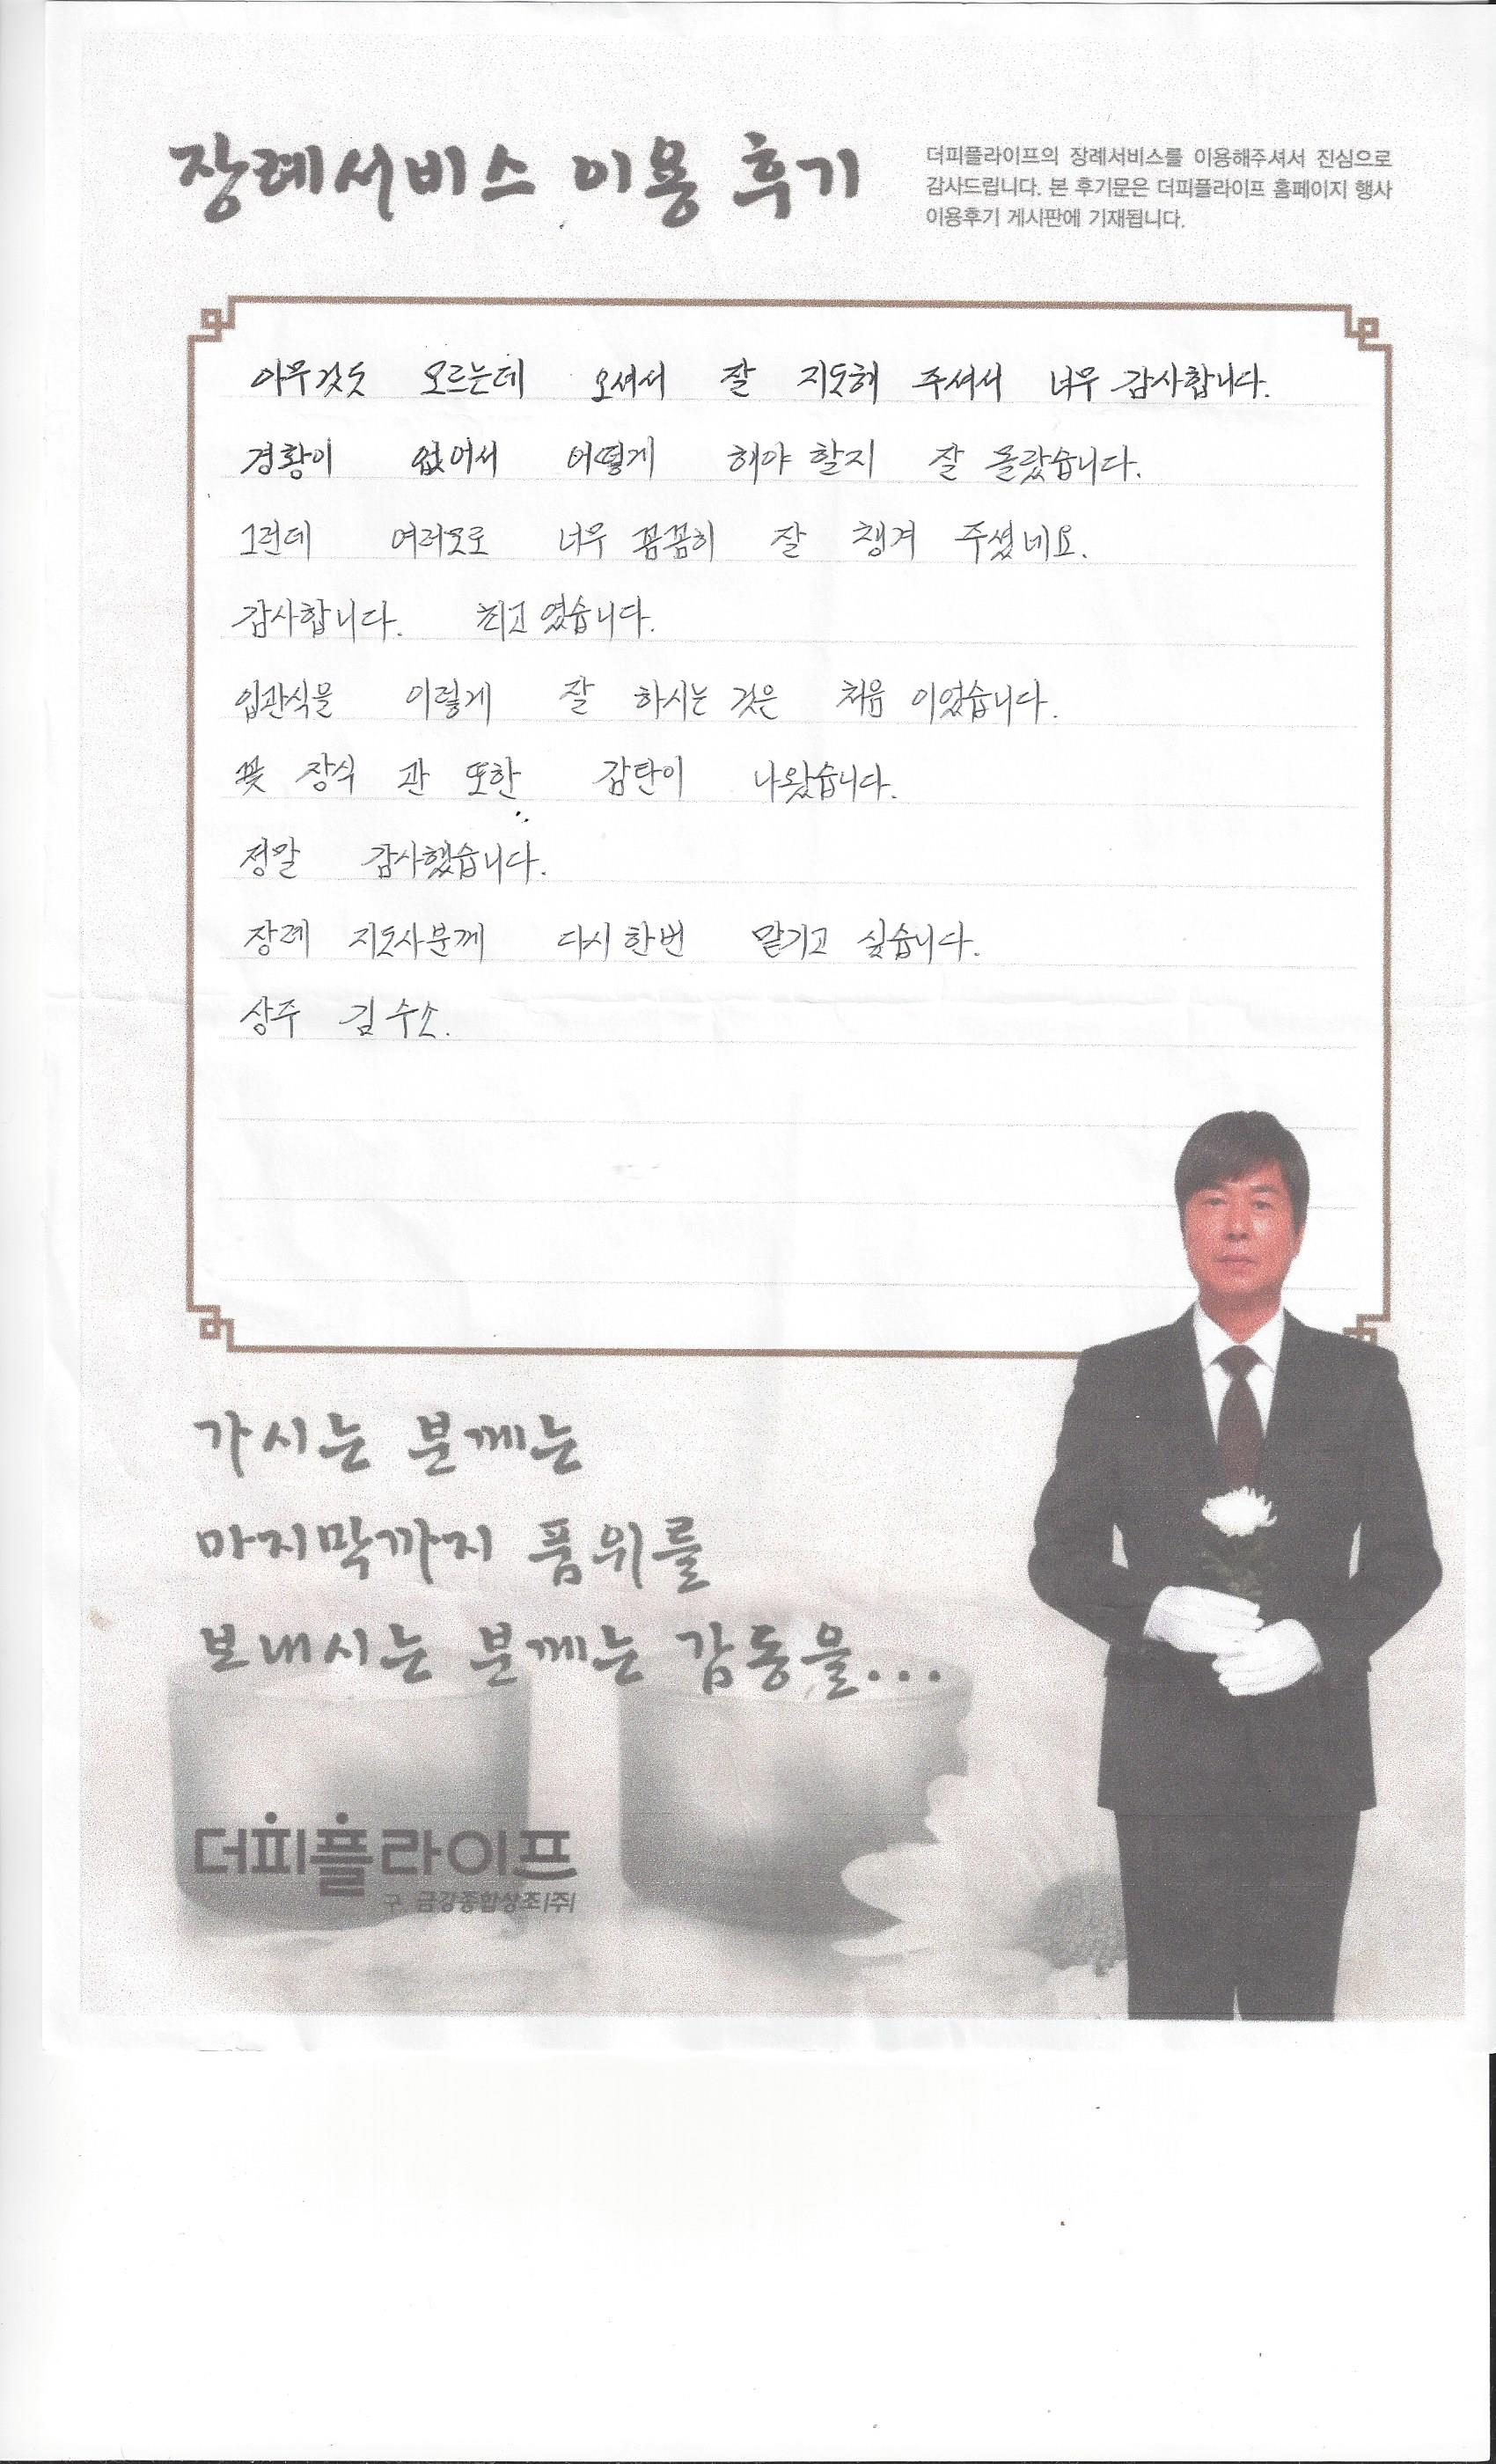 장례서비스 이용 후기
더피플라이프의 장례서비스를 이용해주셔서 진심으로
감사드립니다. 본 후기문은 더피플라이프 홈페이지 행사
이용후기 게시판에 기재됩니다.
아무것도 모르는데 오셔서 잘 지도해 주셔서 너무 감사합니다.
경황이 없어서 어떻게 해야 할지 잘 몰랐습니다.
그런데 여러모로 너무 꼼꼼히 잘 챙겨 주셨네요.
감사합니다. 최고 였습니다.
입관식을 이렇게 잘 하시는 것은 처음 이었습니다.
꽃 장식 관 또한 감탄이 나왔습니다.
정말 감사했습니다.
장례 지도사분께 다시 한번 맡기고 싶습니다.
상주 김수소.
가시는 분께는
마지막까지 품위를
보내시는 분께는 감동을...
더피플라이프
구. 금강종합상조(주)